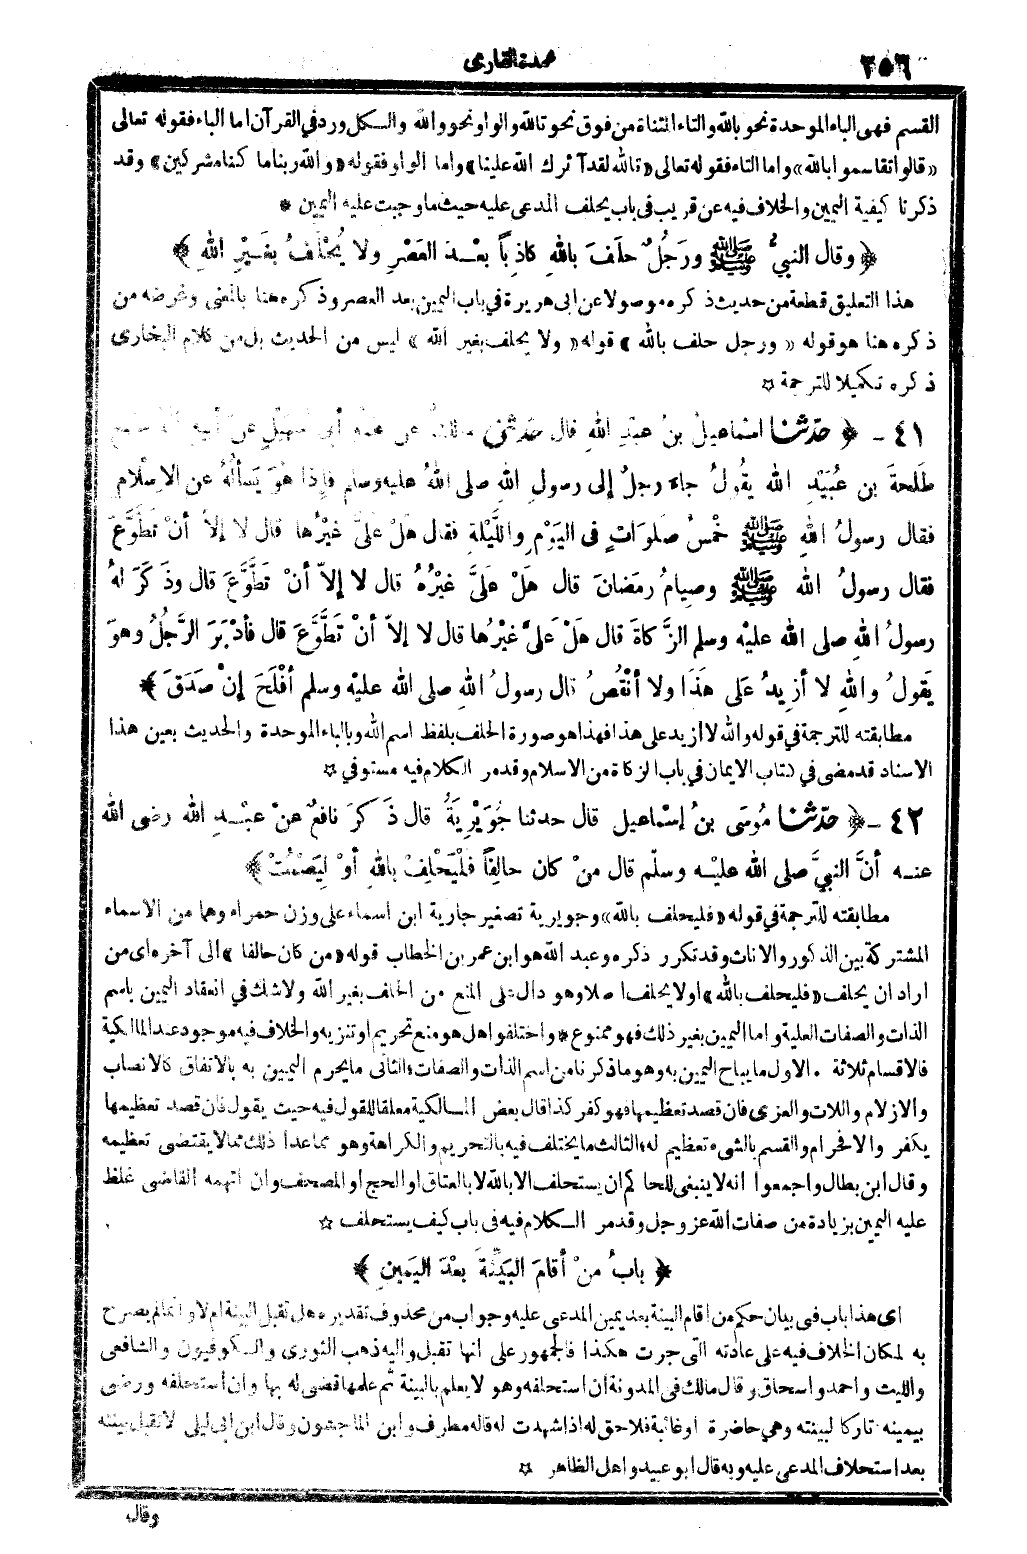 ٢٥٦
عمدة القارى
القسم فهى الباء الموحدة نحو بالله والتاء المثناة من فوق نحو تالله والواو نحو والله والكل ورد فى القرآن اما الباء فقوله تعالى
«قالوا تقاسموا بالله» واما التاء فقوله تعالى «تالله لقد آثرك الله علينا» واما الواو فقوله «والله ربنا ما كنا مشركين» وقد
ذكرنا كيفية اليمين والخلاف فيه عن قريب فى باب يحلف المدعى عليه حيث ما وجبت عليه اليمين *
﴿ وقال النبيُّ ﷺ ورَجُلٌ حلَفَ باللهِ كاذِباً بعْدَ العَصْرِ ولا يُحْلَفُ بغَيْرِ اللهِ ﴾
هذا التعليق قطعة من حديث ذكره موصولا عن ابى هريرة فى باب اليمين بعد العصر وذكره هنا بالمعنى وغرضه من
ذكره هنا هو قوله «ورجل حلف بالله» قوله «ولا يحلف بغير الله» ليس من الحديث بل من كلام البخارى
ذكره تكميلا للترجمة ☆
٤١ - ﴿ حدّثنا اسْماعيلُ بنُ عبْدِ اللهِ قال حدّثنى مالكٌ عن عمّهِ أبى سُهَيْلٍ عنْ أبيهِ أنّهُ سمِعَ
طَلحةَ بن عُبَيْدِ الله يقُولُ جاء رجلٌ إلى رسولِ اللهِ صلى اللهُ عليه وسلم فإذا هُوَ يَسألُهُ عن الاسْلامِ
فقال رسولُ اللهِ ﷺ خمْسُ صلَواتٍ فى اليَوْمِ واللَّيْلةِ فقال هلْ علىَّ غيْرُها قال لا إلاّ أنْ تَطَّوَّعَ
فقال رسولُ الله ﷺ وصِيامُ رمَضانَ قال هَلْ علَىَّ غيْرُهُ قال لا إلاّ أنْ تَطَّوَّعَ قال وذَكَرَ لهُ
رسولُ اللهِ صلى الله عليْه وسلم الزَّكاةَ قال هَلْ علَىَّ غيْرُها قال لا إلاّ أنْ تَطَّوَّعَ قال فأدْبَرَ الرَّجُلُ وهوَ
يَقولُ واللهِ لا أزِيدُ علَى هَذَا ولا أنْقُصُ قال رسولُ اللهِ صلى الله عليْه وسلم أفْلَحَ إنْ صَدَقَ ﴾
مطابقته للترجمة فى قوله والله لا ازيد على هذا فهذا هو صورة الحلف بلفظ اسم الله وبالباء الموحدة والحديث بعين هذا
الاسناد قد مضى فى كتاب الايمان فى باب الزكاة من الاسلام وقد مر الكلام فيه مستوفى ☆
٤٢ - ﴿ حدّثنا مُوسَى بنُ إسْماعيل قال حدثنا جُوَيْرِيَةُ قال ذَكَرَ نافعٌ عنْ عبْدِ الله رضى الله
عنه أنَّ النبيَّ صلى الله عليْه وسلّم قال منْ كان حالِفاً فلْيَحْلِفْ باللهِ أوْ لِيَصْمُتْ ﴾
مطابقته للترجمة فى قوله «فليحلف بالله» وجويرية تصغير جارية ابن اسماء على وزن حمراء وهما من الاسماء
المشتركة بين الذكور والاناث وقد تكرر ذكره وعبد الله هو ابن عمر بن الخطاب قوله «من كان حالفا» الى آخره اى من
اراد ان يحلف «فليحلف بالله» او لا يحلف اصلا وهو دال على المنع من الحلف بغير الله ولا شك فى انعقاد اليمين باسم
الذات والصفات العلية واما اليمين بغير ذلك فهو ممنوع * واختلفوا هل هو منع تحريم او تنزيه والخلاف فيه موجود عند المالكية
فالاقسام ثلاثة . الاول ما يباح اليمين به وهو ما ذكرنا من اسم الذات والصفات ؛ الثانى ما يحرم اليمين به بالاتفاق كالانصاب
والازلام واللات والعزى فان قصد تعظيمها فهو كفر كذا قال بعض المالكية معلقا للقول فيه حيث يقول فان قصد تعظيمها
يكفر والا فحرام والقسم بالشىء تعظيم له ؛ الثالث ما يختلف فيه بالتحريم والكراهة وهو ما عدا ذلك مما لا يقتضى تعظيمه
وقال ابن بطال واجمعوا انه لا ينبغى للحاكم ان يستحلف الا بالله لا بالعتاق او الحج او المصحف وان اتهمه القاضى غلظ
عليه اليمين بزيادة من صفات الله عز وجل وقد مر الكلام فيه فى باب كيف يستحلف ☆
﴿ بابُ منْ أقامَ البَيِّنَةَ بعْدَ اليَمينِ ﴾
اى هذا باب فى بيان حكم من اقام البينة بعد يمين المدعى عليه وجواب من محذوف تقديره هل تقبل البينة ام لا وانما لم يصرح
به لمكان الخلاف فيه على عادته التى جرت هكذا فالجمهور على انها تقبل واليه ذهب الثورى والكوفيون والشافعى
والليث واحمد واسحاق وقال مالك فى المدونة ان استحلفه وهو لا يعلم بالبينة ثم علمها قضى له بها وان استحلفه ورضى
بيمينه تاركا لبينته وهى حاضرة او غائبة فلا حق له اذا شهدت له قاله مطرف وابن الماجشون وقال ابن ابى ليلى لا تقبل بينته
بعد استحلاف المدعى عليه وبه قال ابو عبيد واهل الظاهر ☆
وقال